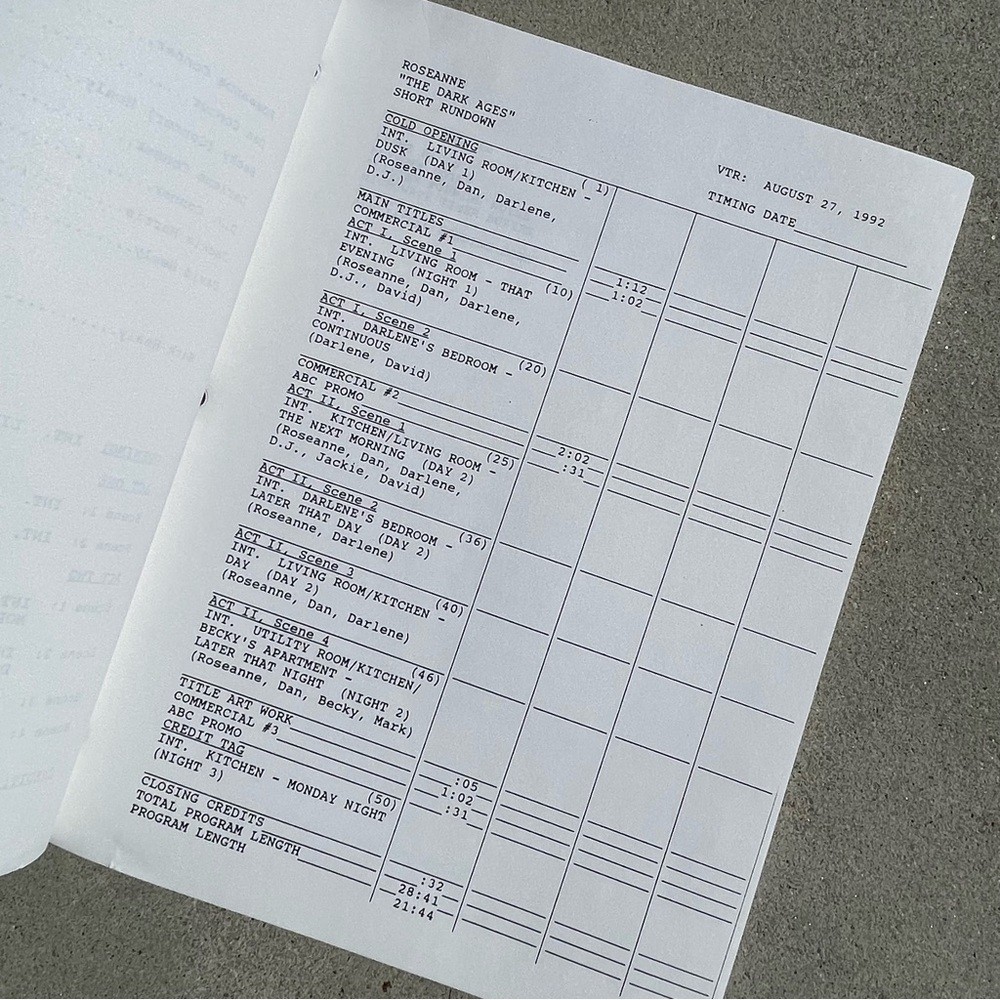 ROSEANNE
"THE DARK AGES"
SHORT RUNDOWN
VTR: AUGUST 27, 1992
TIMING DATE
COLD OPENING
INT. LIVING ROOM/KITCHEN - ( 1)
DUSK (DAY 1)
(Roseanne, Dan, Darlene,
D.J.)
MAIN TITLES 1:12
COMMERCIAL #1 1:02
ACT I, Scene 1
INT. LIVING ROOM - THAT (10)
EVENING (NIGHT 1)
(Roseanne, Dan, Darlene,
D.J., David)
ACT I, Scene 2
INT. DARLENE'S BEDROOM - (20)
CONTINUOUS
(Darlene, David)
COMMERCIAL #2 2:02
ABC PROMO :31
ACT II, Scene 1
INT. KITCHEN/LIVING ROOM - (25)
THE NEXT MORNING (DAY 2)
(Roseanne, Dan, Darlene,
D.J., Jackie, David)
ACT II, Scene 2
INT. DARLENE'S BEDROOM - (36)
LATER THAT DAY (DAY 2)
(Roseanne, Darlene)
ACT II, Scene 3
INT. LIVING ROOM/KITCHEN - (40)
DAY (DAY 2)
(Roseanne, Dan, Darlene)
ACT II, Scene 4
INT. UTILITY ROOM/KITCHEN/ (46)
BECKY'S APARTMENT -
LATER THAT NIGHT (NIGHT 2)
(Roseanne, Dan, Becky, Mark)
TITLE ART WORK :05
COMMERCIAL #3 1:02
ABC PROMO :31
CREDIT TAG
INT. KITCHEN - MONDAY NIGHT (50)
(NIGHT 3)
CLOSING CREDITS :32
TOTAL PROGRAM LENGTH 28:41
PROGRAM LENGTH 21:44